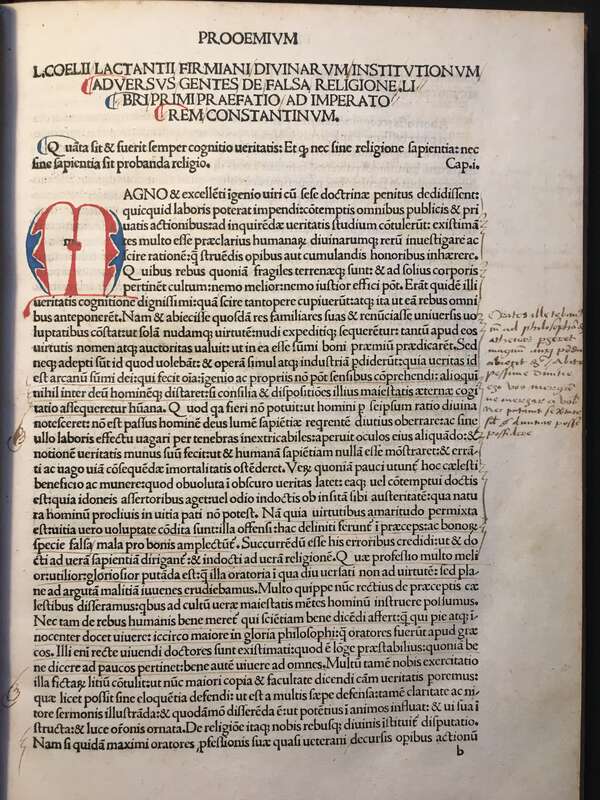 PROOEMIVM
L. COELII LACTANTII FIRMIANI/DIVINARVM/INSTITVTIONVM/
ADVERSVS GENTES DE FALSA RELIGIONE. LI
BRI PRIMI PRAEFATIO/AD IMPERATO
REM/CONSTANTINVM.
Quãta sit & fuerit semper cognitio ueritatis: Et ꝙ nec sine religione sapientia: nec
sine sapientia sit probanda religio. Cap.i.
MAGNO & excellẽti ĩgenio uiri cũ sese doctrinæ penitus dedidissent:
quicquid laboris poterat impendi: cõtemptis omnibus publicis & pri
uatis actionibus: ad inquirẽdæ ueritatis studium cõtulerũt: existimã
tes multo esse præclarius humanaꝝ diuinarumq; rerũ inuestigare ac
scire rationẽ: q̃ struẽdis opibus aut cumulandis honoribus inhærere.
Quibus rebus quoniã fragiles terrenæq; sunt: & ad solius corporis
pertinẽt cultum: nemo melior: nemo iustior effici põt. Erãt quidẽ illi
ueritatis cognitione dignissimi: quã scire tantopere cupiuerũt: atq; ita ut eã rebus omni
bus anteponerẽt. Nam & abiecisse quosdã res familiares suas & renũciasse uniuersis uo
luptatibus cõstat: ut solã nudamq; uirtutẽ: nudi expeditiq; sequerẽtur: tantũ apud eos
uirtutis nomen atq; auctoritas ualuit: ut in ea esse sũmi boni præmiũ prædicarẽt. Sed
neq; adepti sũt id quod uolebãt: & operã simul atq; industriã pdiderũt: quia ueritas id
est arcanũ sũmi dei: qui fecit oĩa: ĩgenio ac propriis nõ põt sensibus cõprehendi: alioqui
nihil inter deũ hominẽq; distaret: si consilia & dispositiões illius maiestatis æternæ cogi
tatio assequeretur hũana. Quod qa fieri nõ potuit: ut homini p seipsum ratio diuina
notesceret: nõ est passus hominẽ deus lumẽ sapiẽtiæ reqrentẽ diutius oberrare: ac sine
ullo laboris effectu uagari per tenebras inextricabiles: aperuit oculos eius aliquãdo: &
notionẽ ueritatis munus suũ fecit: ut & humanã sapientiam nullã esse mõstraret: & errã
ti ac uago uiã cõsequẽdæ imortalitatis ostẽderet. Veꝝ quoniã pauci utunt᷑ hoc cælesti
beneficio ac munere: quod obuoluta ĩ obscuro ueritas latet: eaq; uel cõtemptui doctis
est: quia idoneis assertoribus aget: uel odio indoctis ob insitã sibi austeritatẽ: quã natu
ra hominũ procliuis in uitia pati nõ potest. Nã quia uirtutibus amaritudo permixta
est: uitia uero uoluptate cõdita sunt: illa offensi: hac deliniti ferunt᷑ ĩ præceps: ac bonoꝝ
specie falsa/mala pro bonis amplectũt᷑. Succurrẽdũ esse his erroribus credidi: ut & do
cti ad uerã sapientiã dirigant᷑: & indocti ad uerã religionẽ. Quæ professio multo meli
or: utilior: gloriosior putãda est: q̃ illa oratoria ĩ qua diu uersati non ad uirtutẽ: sed pla
ne ad argutã malitiã iuuenes erudiebamus. Multo quippe nũc rectius de præceptis cæ
lestibus disseramus: qbus ad cultũ ueræ maiestatis mẽtes hominũ instruere possumus.
Nec tam de rebus humanis bene meret᷑ qui sciẽtiam bene dicẽdi affert: q̃ qui pie atq; ĩ
nocenter docet uiuere: iccirco maiore in gloria philosophi: q̃ oratores fuerũt apud græ
cos. Illi eni recte uiuendi doctores sunt existimati: quod ẽ lõge præstabilius: quoniã be
ne dicere ad paucos pertinet: bene autẽ uiuere ad omnes. Multũ tamẽ nobis exercitatio
illa fictaꝝ litiũ cõtulit: ut nũc maiori copia & facultate dicendi cãm ueritatis poremus:
quæ licet possit sine eloquẽtia defendi: ut est a multis sæpe defensa: tamẽ claritate ac ni
tore sermonis illustrãda: & quodãmõ differẽda ẽ: ut potẽtius ĩ animos influat: & ui sua ĩ
structa: & luce orõnis ornata. De religiõe itaq; nobis rebusq; diuinis ĩstituit᷑ disputatio.
Nam si quidã maximi oratores pfessionis suæ quasi ueterani decursis opibus actionũ
b